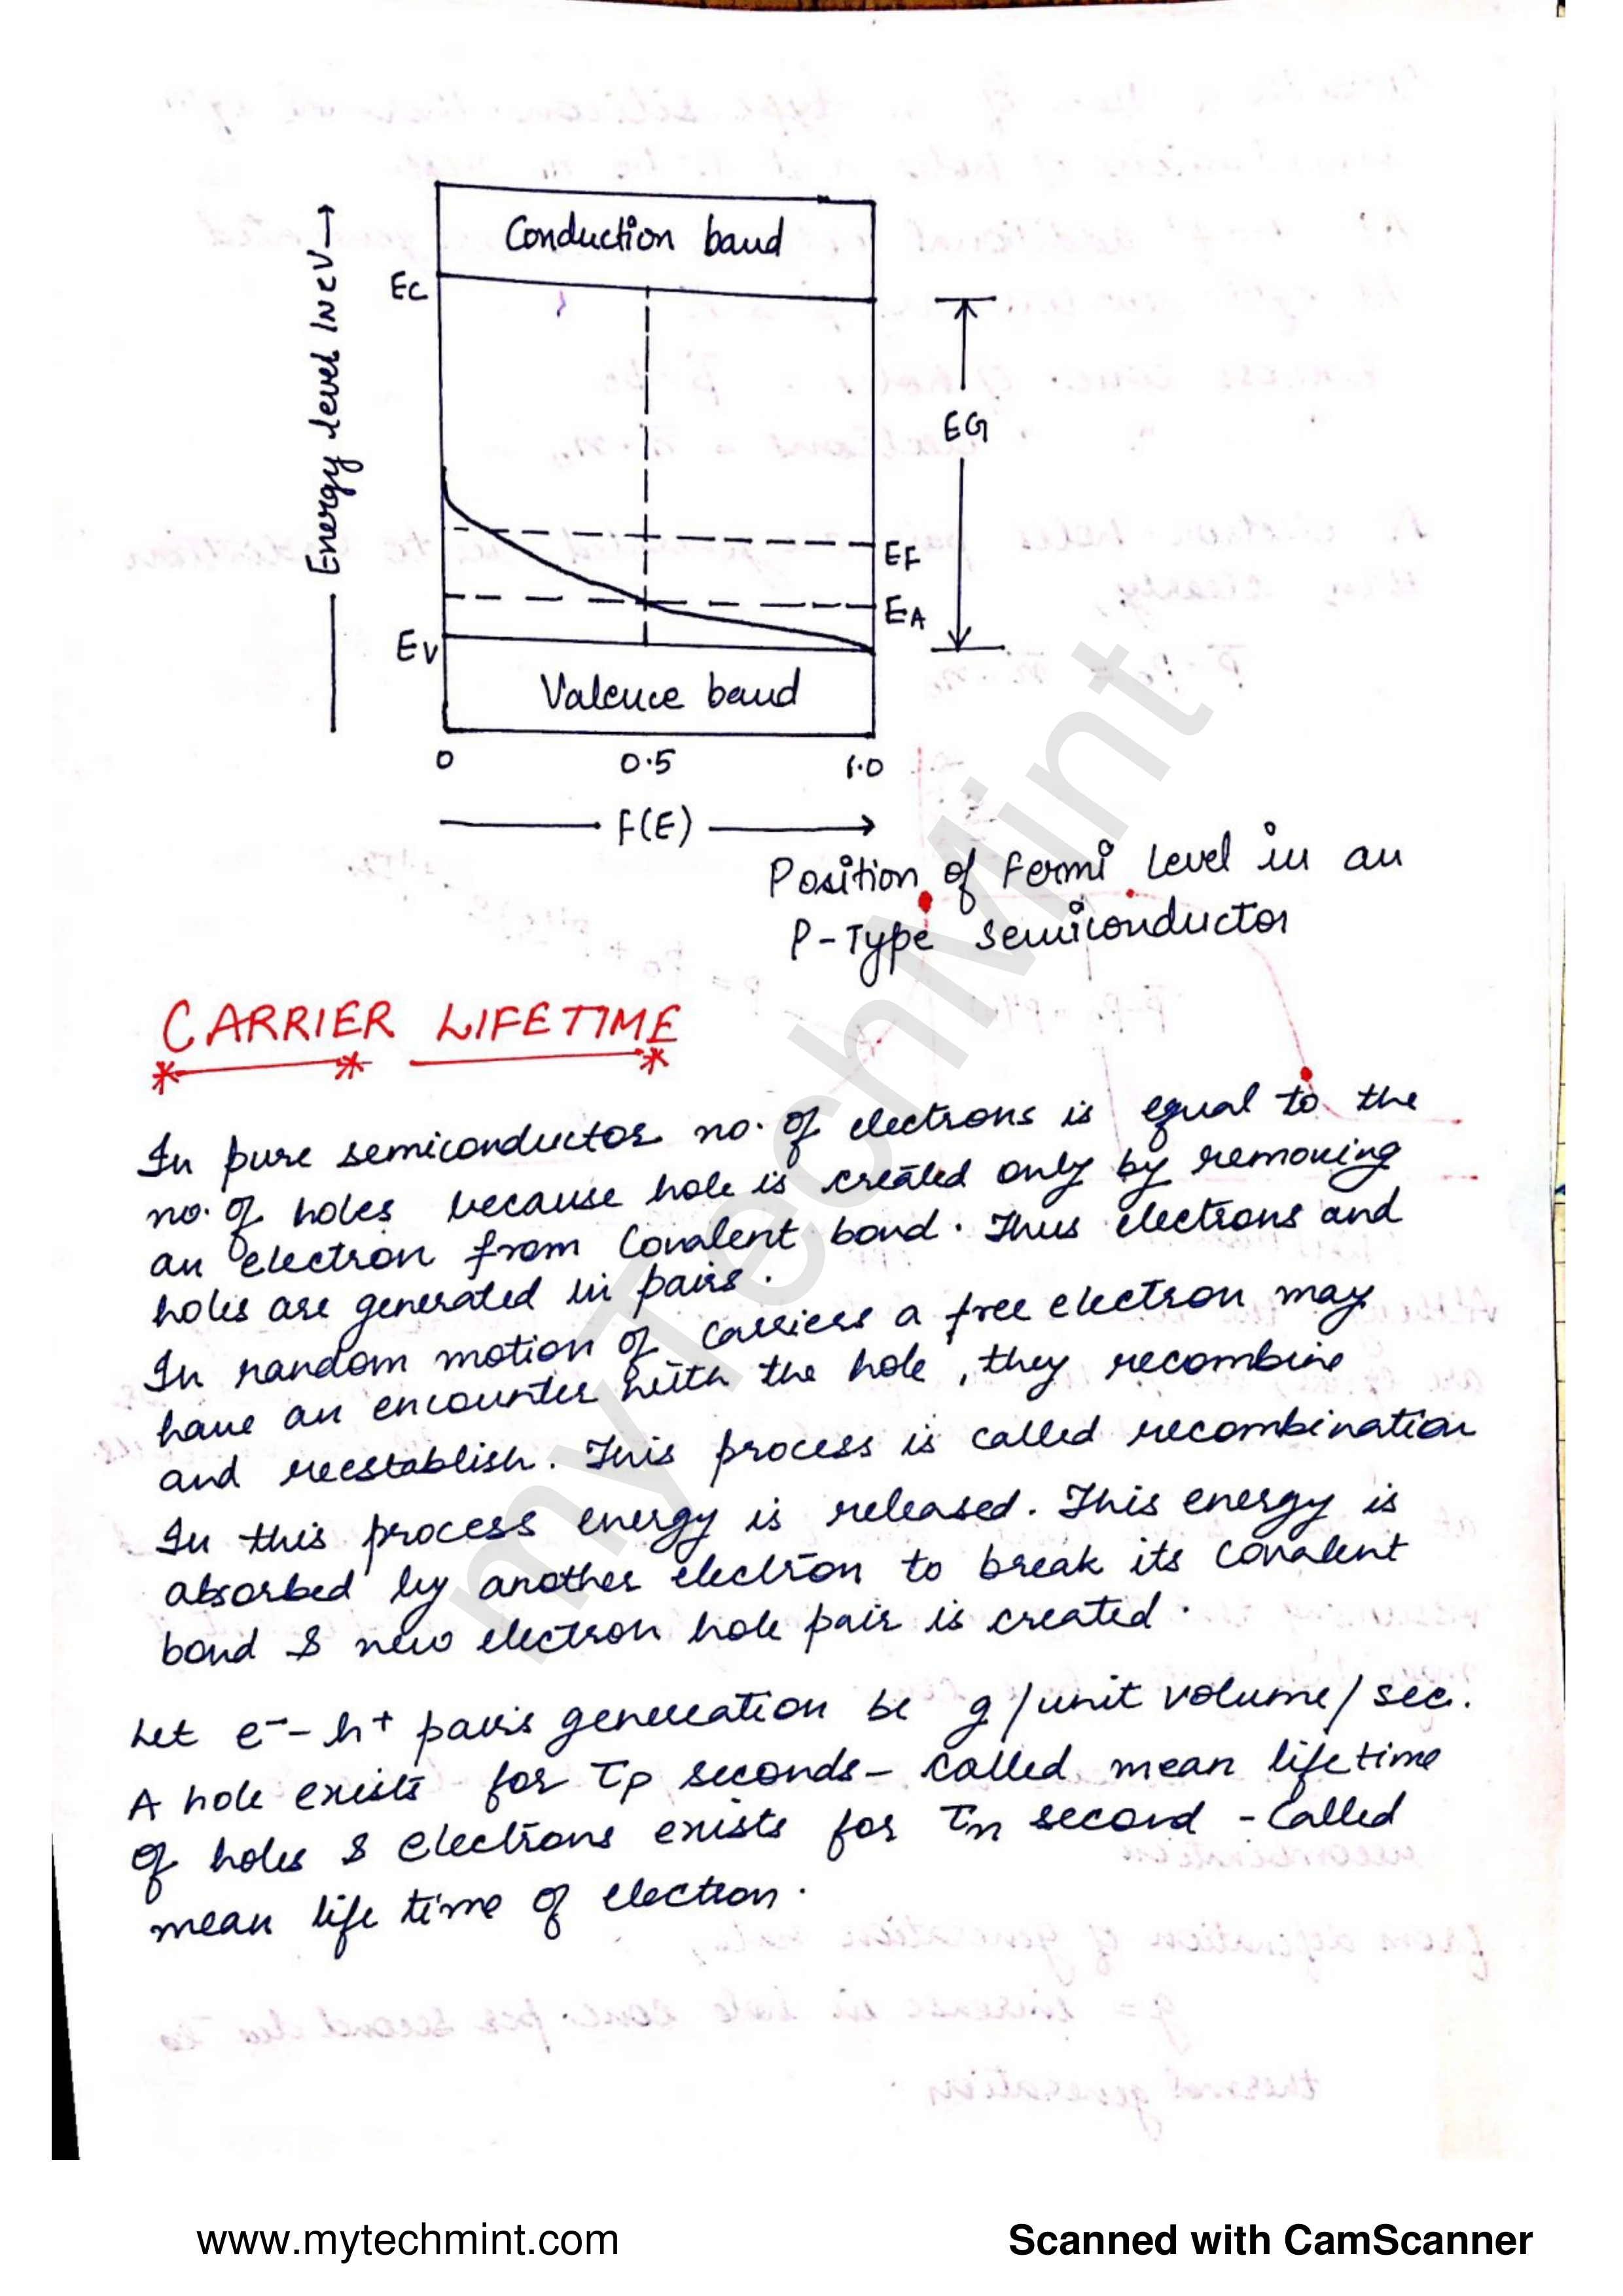 Conduction band
Energy level in eV →
EC
EG
EF
EA
EV
Valence band
0 0.5 1.0
F(E)
Position of Fermi Level in an
P-Type Semiconductor
CARRIER LIFETIME
In pure semiconductor no. of electrons is equal to the
no. of holes because hole is created only by removing
an electron from Covalent bond. Thus electrons and
holes are generated in pairs.
In random motion of carriers a free electron may
have an encounter with the hole, they recombine
and reestablish. This process is called recombination
In this process energy is released. This energy is
absorbed by another electron to break its covalent
bond & new electron hole pair is created.
Let e⁻- h⁺ pairs generation be g/unit volume/sec.
A hole exists for τp seconds - called mean lifetime
of holes & electrons exists for τn second - called
mean life time of election.
myTechMint
www.mytechmint.com
Scanned with CamScanner